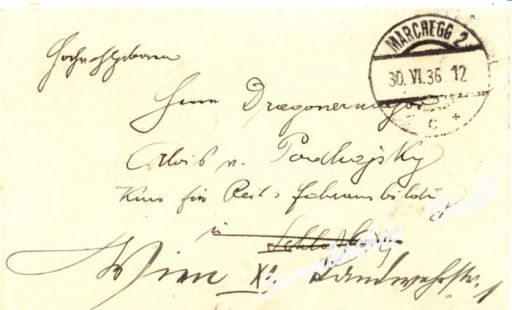 Hochwohlgeboren
MARCHEGG 2
30.VI.36 12
c *
Herrn Dragonermajor
Alois v. Podhajsky
Kurs für Reit- u. Fahrausbildung
in Schloßhof
Wien X. Landwehrstr. 1